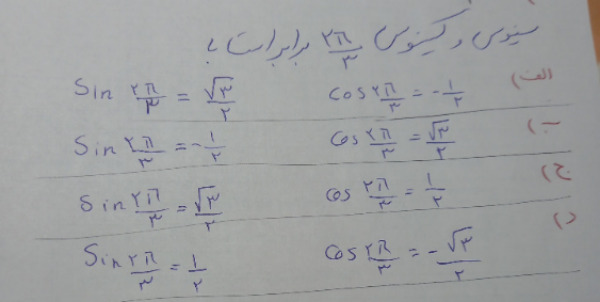 سینوس و کسینوس ۲π/۳ برابر است با
الف) Sin ۲π/۳ = √۳/۲ cos ۲π/۳ = -۱/۲
ب) Sin ۲π/۳ = -۱/۲ Cos ۲π/۳ = √۳/۲
ج) Sin ۲π/۳ = √۳/۲ cos ۲π/۳ = ۱/۲
د) Sin ۲π/۳ = ۱/۲ cos ۲π/۳ = -√۳/۲